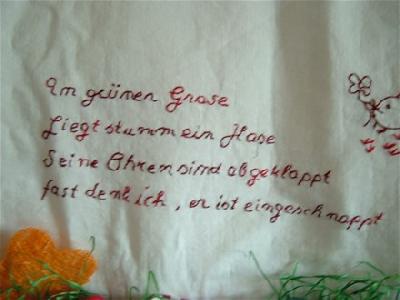 Im grünen Grase
Liegt stumm ein Hase
Seine Ohren sind abgeklappt
fast denk ich, er ist eingeschnappt